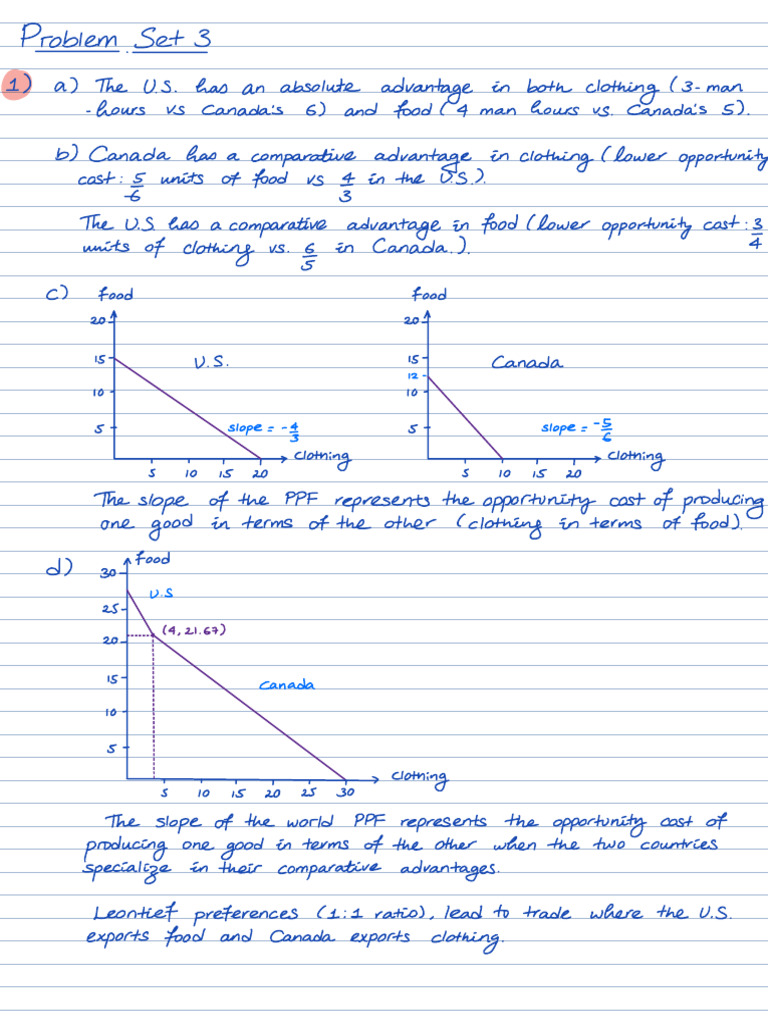 Problem Set 3
1) a) The U.S. has an absolute advantage in both clothing (3-man
-hours vs Canada's 6) and food (4 man hours vs. Canada's 5).
b) Canada has a comparative advantage in clothing (lower opportunity
cost: 5/6 units of food vs 4/3 in the U.S.).
The U.S has a comparative advantage in food (lower opportunity cost: 3/4
units of clothing vs. 6/5 in Canada.).
c) Food
20
15
10
5
U.S.
slope = -4/3
clothing
5 10 15 20
Food
20
15
12
10
5
Canada
slope = -5/6
clothing
5 10 15 20
The slope of the PPF represents the opportunity cost of producing
one good in terms of the other (clothing in terms of food).
d) Food
30
25
20
15
10
5
U.S
(4, 21.67)
Canada
clothing
5 10 15 20 25 30
The slope of the world PPF represents the opportunity cost of
producing one good in terms of the other when the two countries
specialize in their comparative advantages.
Leontief preferences (1:1 ratio), lead to trade where the U.S.
exports food and Canada exports clothing.